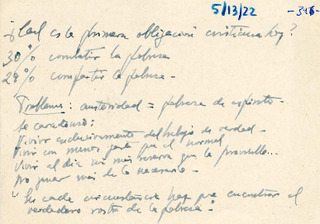 5/13/22 -346-
-¿Cuál es la primera obligación cristiana hoy?
30% combatir la pobreza
28% compartir la pobreza-
Problemas: austeridad = pobreza de espíritu-
Vivir exclusivamente del trabajo es verdad-
Vivir con menos gasto que el normal
Vivir al día sin más reserva que la
No ganar más de lo necesario-
"En cada circunstancia hay que encontrar el
verdadero rostro de la pobreza".